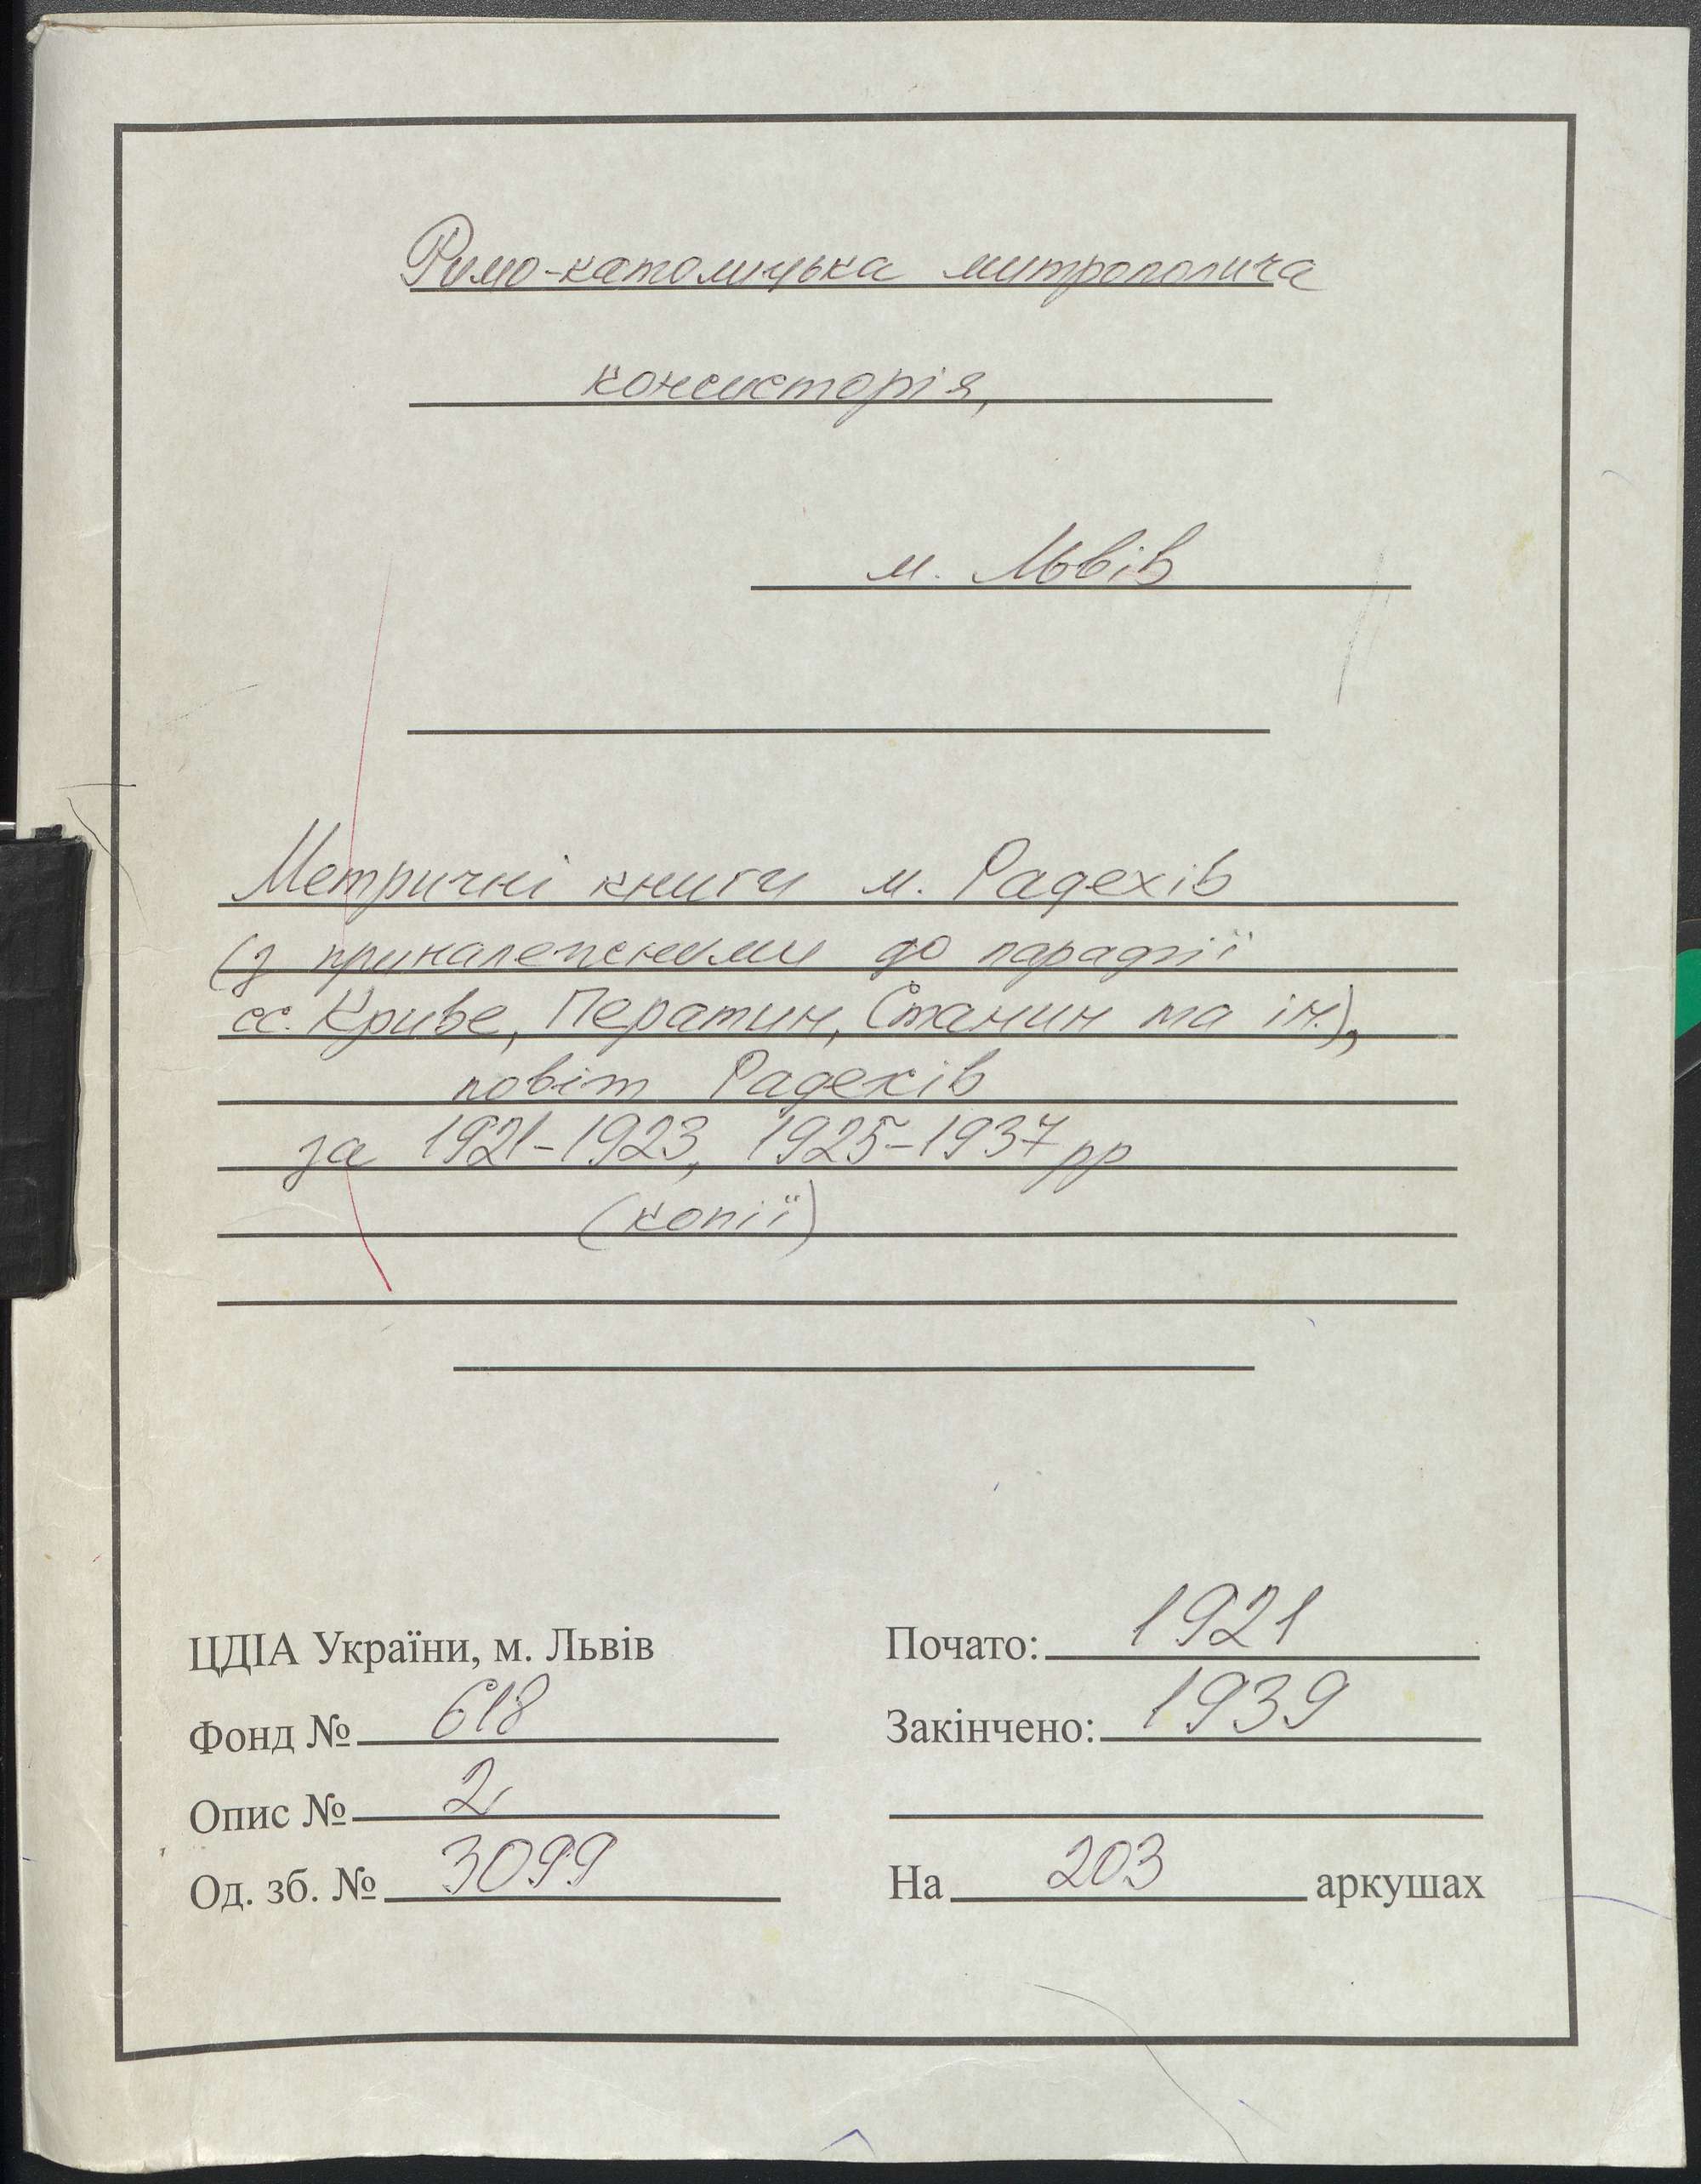 Римо-католицька митрополича
консисторія,
м. Львів
Метричні книги м. Радехів
(з приналежними до парафії
сс. Криве, Ператин, Станин та ін.),
повіт Радехів
за 1921-1923, 1925-1937 рр
(копії)
ЦДІА України, м. Львів
Фонд № 618
Опис № 2
Од. зб. № 3099
Почато: 1921
Закінчено: 1939
На 203 аркушах